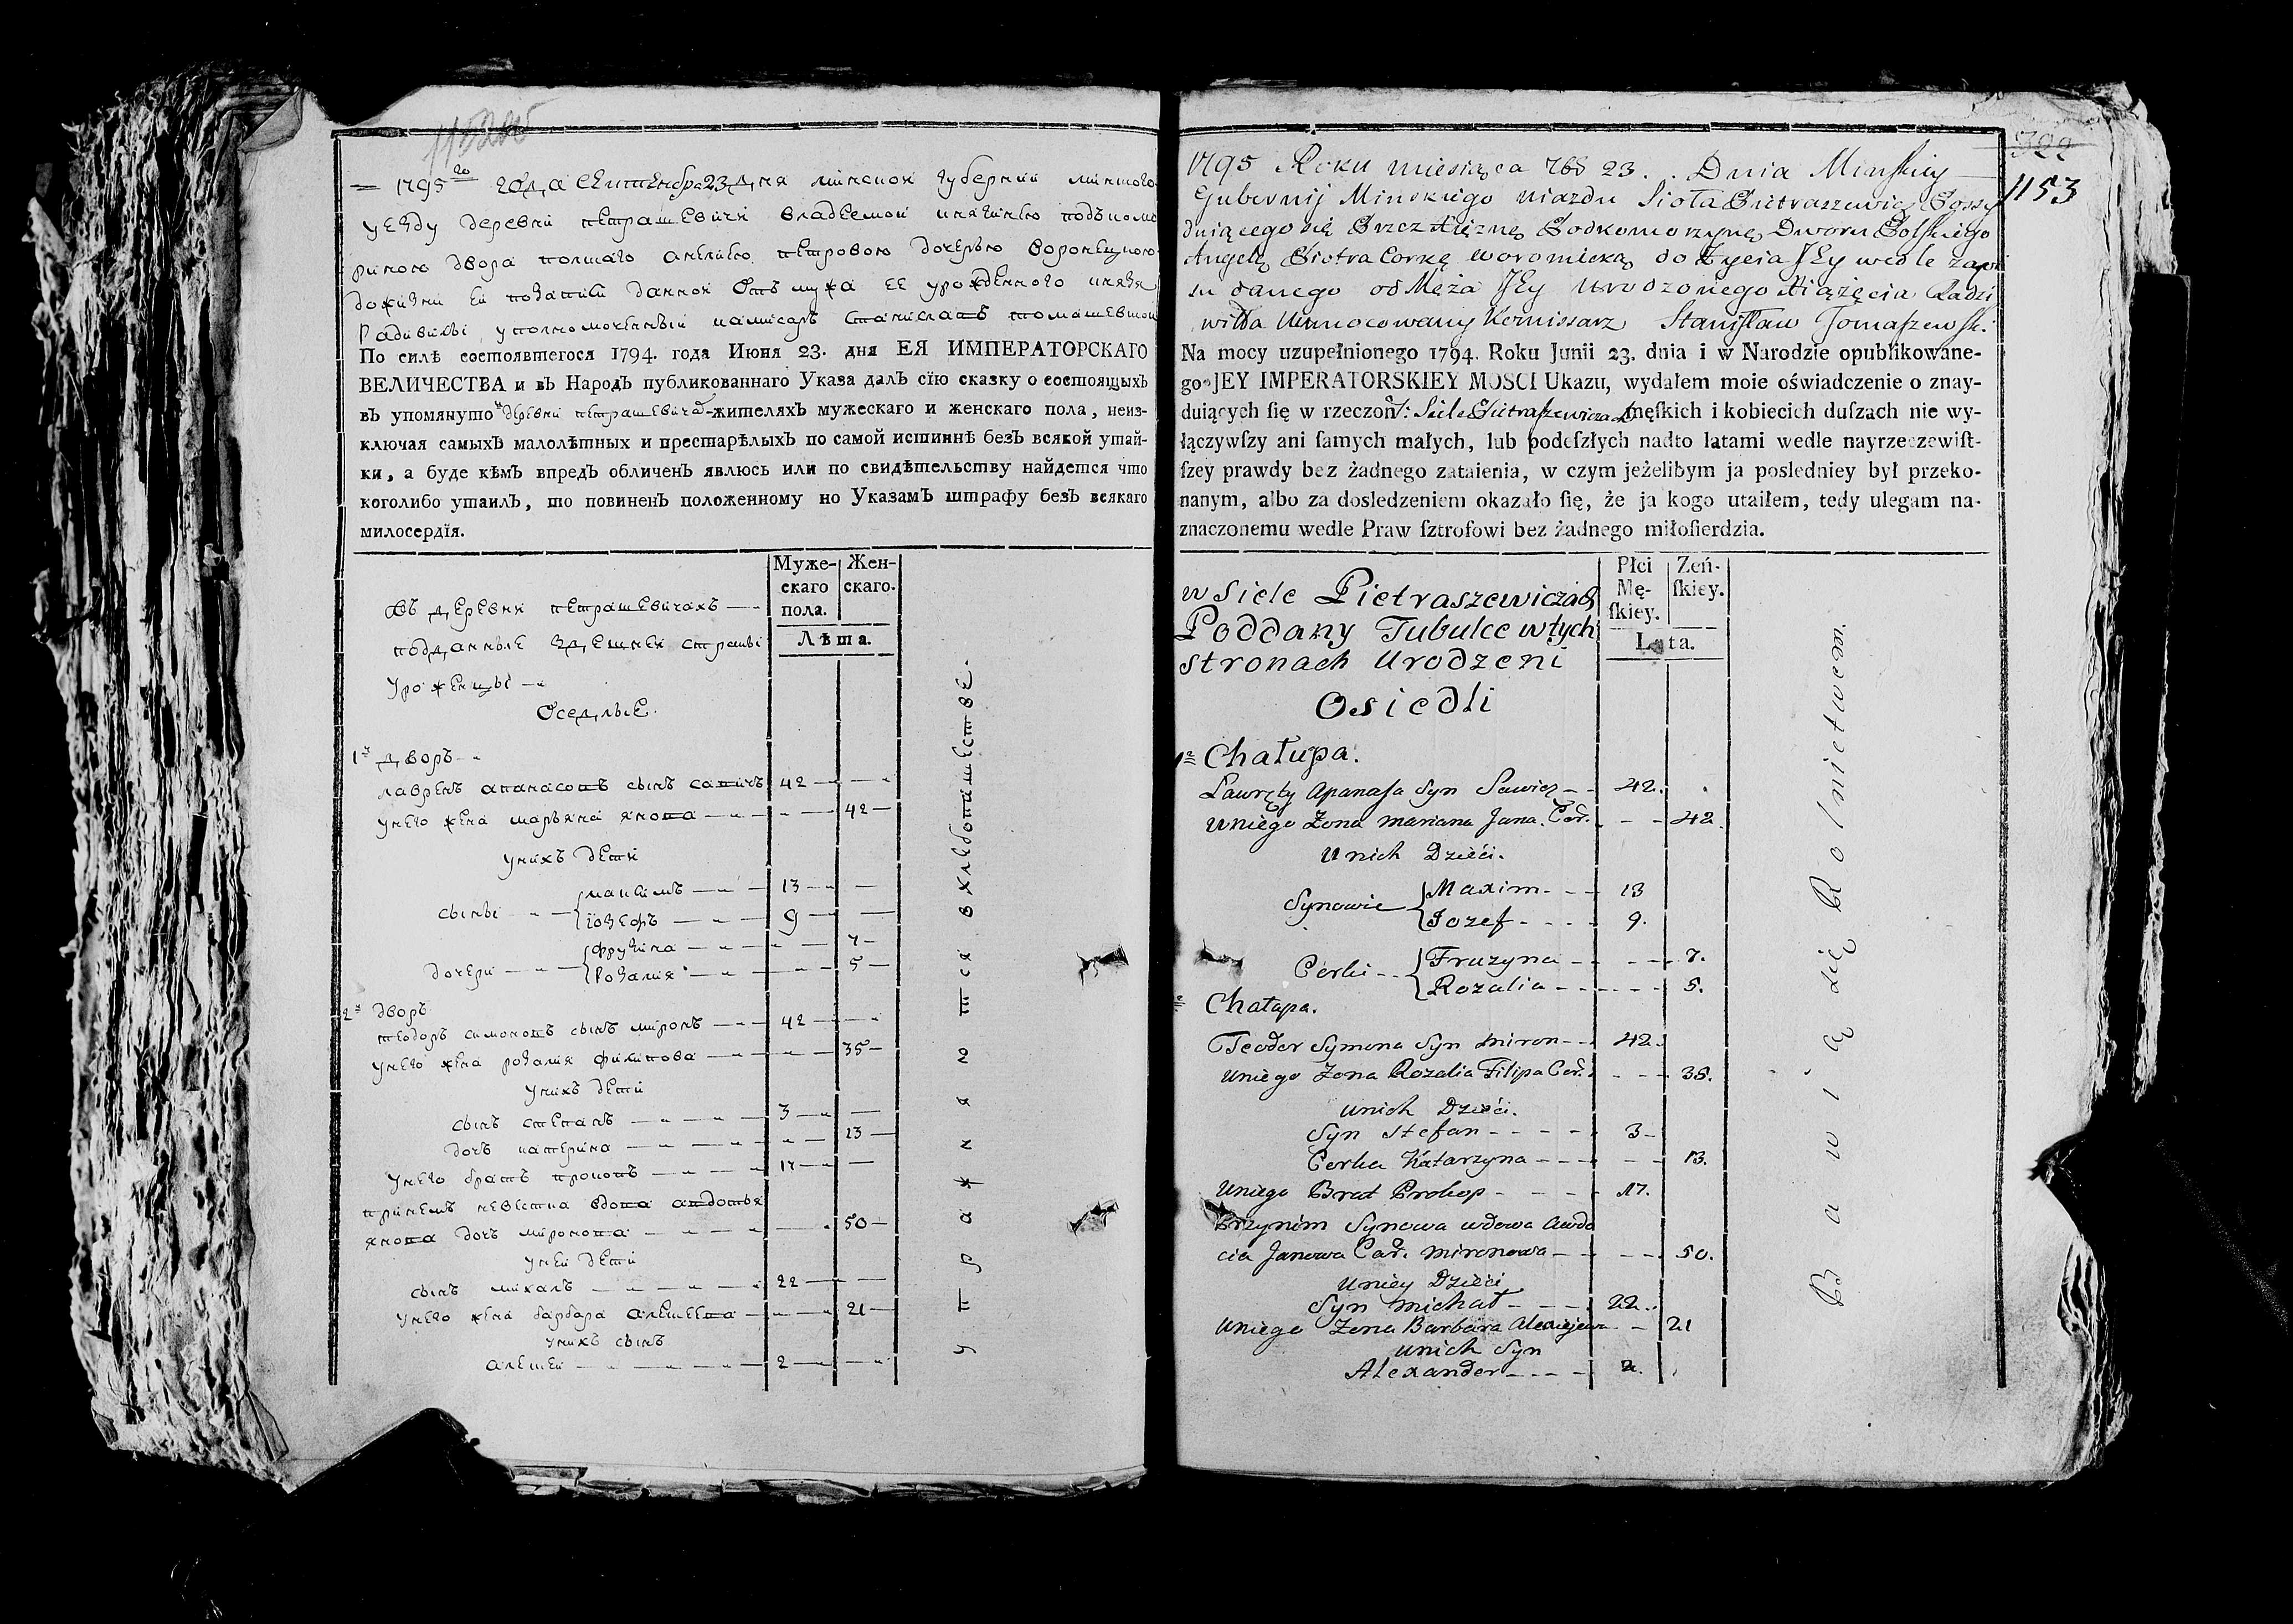 1795го года сентебра 23 дня минской губернии минского
уезду деревни петрашевичи владемой княгинею подъкомо
риною двора полшаго анелию петровою дочерью
дожизни ей подаписи данной отъ мужа ее урожденного князя
Радивилы, уполномоченный комисаръ станиславъ томашевский
По силѣ состоявшегося 1794. года Июня 23. дня ЕЯ ИМПЕРАТОРСКАГО
ВЕЛИЧЕСТВА и въ Народъ публикованнаго Указа далъ сїю сказку о состоящыхъ
въ упомянуто й деревни петрашевичахъ -жителяхъ мужескаго и женскаго пола, неиз-
ключая самыхъ малолѣтныхъ и престарѣлыхъ по самой истиннѣ безъ всякой утай-
ки, а буде кѣмъ впредъ обличенъ явлюсь или по свидѣтельству найдется что
коголибо утаилъ, то повиненъ положенному по Указамъ штрафу безъ всякаго
милосердїя.
Муже- Жен-
скаго скаго.
пола.
Лѣта.
Въ деревни петрашевичахъ
подданные здешнеи страны
уроженцы
Оседлые.
1й дворъ
лавренъ апанасовъ сынъ савичъ 42
унего жена марьяна янова 42
унихъ дети
сыны { макъсимъ 13
іозефъ 9
дочери { фрузина 7
розалия 5
2й дворъ
теодоръ симоновъ сынъ миронъ 42
унего жена розалия филипова 35
унихъ дети
сынъ степанъ 3
дочъ катерина 13
унего братъ прокопъ 17
принемъ невестка вдова авдотья
янова дочъ миронова 50
уней дети
сынъ михалъ 22
унего жена барбара алексеева 21
унихъ сынъ
алексей 2
упражняется вхлебопашестве.
322
1153
1795 Roku miesiąca 7bs 23. Dnia Minskiey
Gubernij Minskiego Uiazdu Sioła Pietraszewicz Possy
duiącego się Przez Xiężnę Podkomorzynę Dworu Polskiego
Angelę Piotra Corkę woroniecką do Życia JEy wedle zapi
su danego od Męża JEy Urodzonego Xiążęcia Radzi
wiłła Umocowany Komissarz Stanisław Tomaszewski
Na mocy uzupełnionego 1794. Roku Junii 23. dnia i w Narodzie opublikowane-
go JEY IMPERATORSKIEY MOSCI Ukazu, wydałem moie oświadczenie o znay-
duiących ſię w rzeczon y: Siele Pietraszewiczach męſkich i kobiecich duſzach nie wy-
łączywſzy ani ſamych małych, lub podeſzłych nadto latami wedle nayrzeczewiſt-
ſzey prawdy bez żadnego zataienia, w czym jeżelibym ja posledniey był przeko-
nanym, albo za dosledzeniem okazało ſię, że ja kogo utaiłem, tedy ulegam na-
znaczonemu wedle Praw ſztrofowi bez żadnego miłoſierdzia.
Płci Żeń-
Mę- ſkiey.
ſkiey.
Lata.
w Siele Pietraszewiczach
Poddany Tubulce w tych
stronach Urodzeni
Osiedli
1e Chałupa.
Lawręty Apanasa Syn Sawicz 42.
Uniego Żona Mariana Jana Cor. 42.
Unich Dzieći.
Synowie { Maxim 13
Jozef 9.
Corki { Fruzyna 7.
Rozalia 5.
Chałupa.
Teodor Symona Syn Miron 42.
Uniego Żona Rozalia Filipa Cor. 35.
Unich Dzieći.
Syn Stefan 3
Corka Katarzyna 13.
Uniego Brat Prokop 17.
Przynim Synowa wdowa Awdo
cia Janowa Cor. Mironowa 50.
Uniey Dzieći
Syn Michał 22.
Uniego Żona Barbara Alexiejewa 21
Unich Syn
Alexander 2.
Bawią się Rolnictwem.